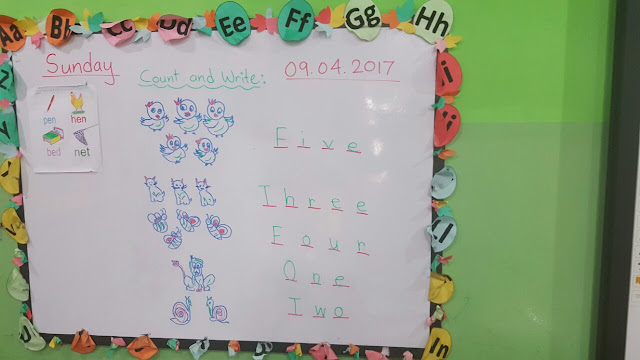 Aa Bb Cc Dd Ee Ff Gg Hh
Sunday
Count and Write:
09.04.2017
pen hen
bed net
Five
Three
Four
One
Two
Ii
Jj
Ll